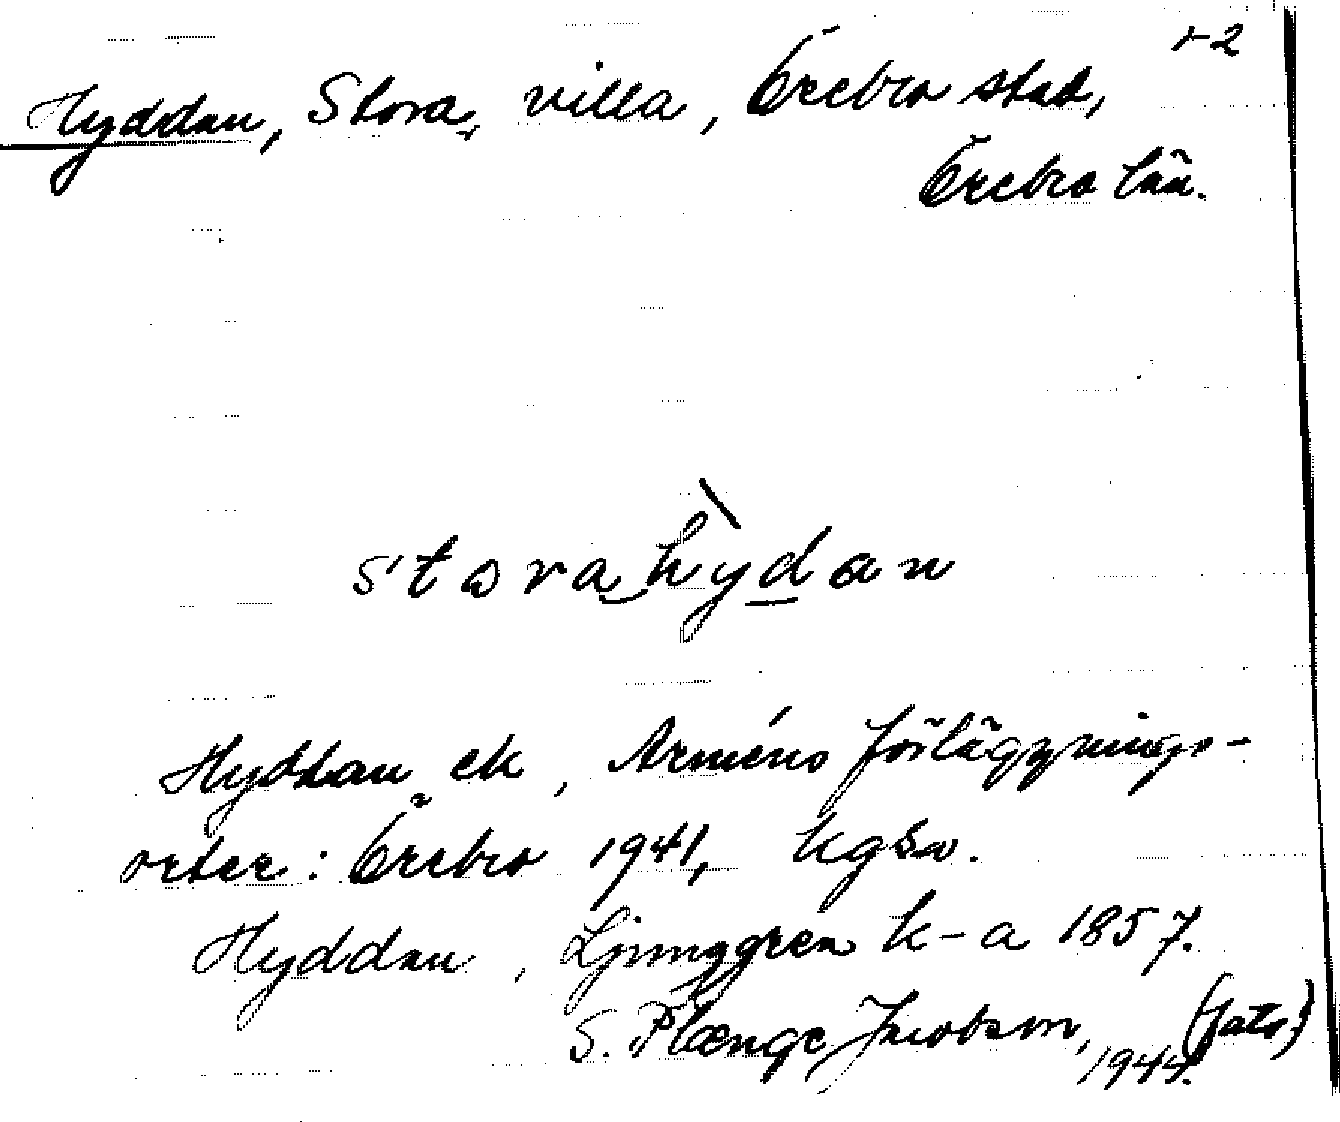 +2
Hyddan, Stora, villa, Örebro stad,
Örebro län.
stora hydan
Hyddan ek, Arméns förläggnings-
orter: Örebro 1941,
Hyddan, Ljunggren k-a 1857.
S. Plænge Jacobson, (foto)
1944.